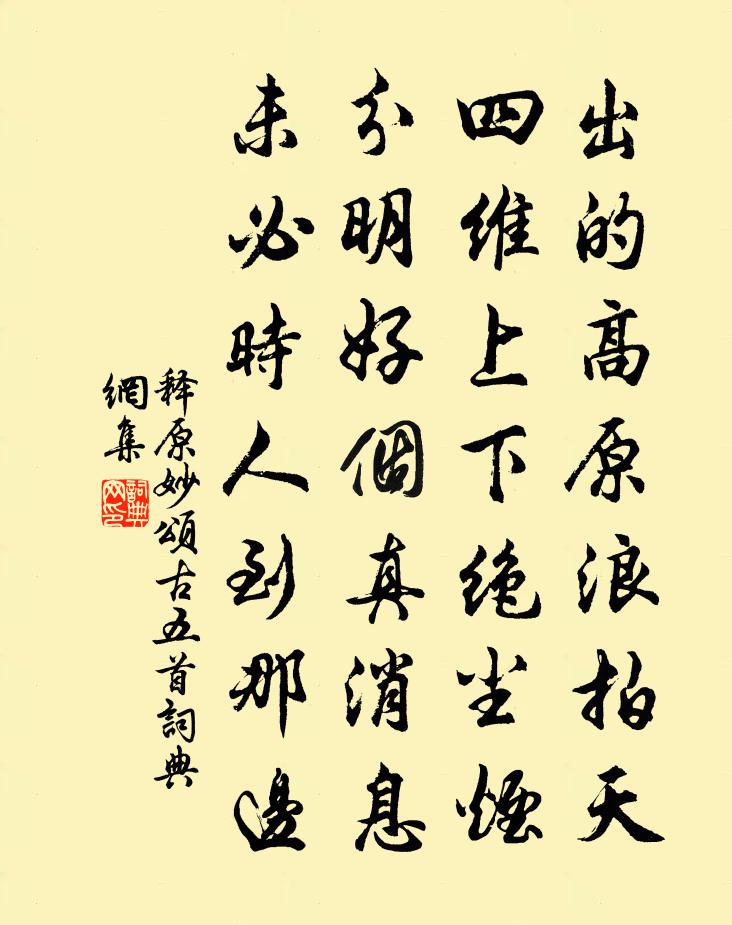 出的高原浪拍天
四維上下绝尘煙
分明好個真消息
未必時人到那邊
释原妙頌古五首詞典
網集
詞典
网印